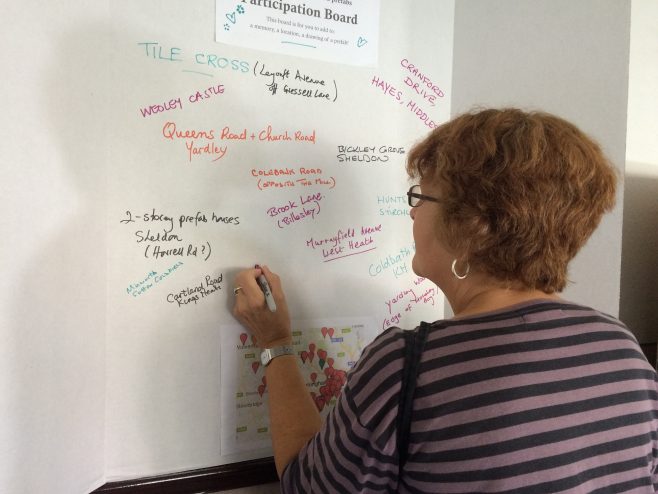 prefabs
Participation Board
This board is for you to add to:
a memory, a location, a drawing of a prefab!
TILE CROSS (Leycroft Avenue
off Gressell Lane)
CRANFORD
DRIVE,
HAYES, MIDDLES
WEOLEY CASTLE
Queens Road + Church Road
Yardley
BICKLEY GROVE
SHELDON
COLEBANK ROAD
(OPPOSITE THE MILL)
Brook Lane
(Billesley)
2-storey prefab houses
Sheldon
(Horrell Rd?)
Murrayfield Avenue
West Heath
HUNTS
STIRCH
Coldbath
KH
Minworth
Sutton Coldfield
Cartland Road
Kings Heath
Yardley Wo
(Edge of Yardley